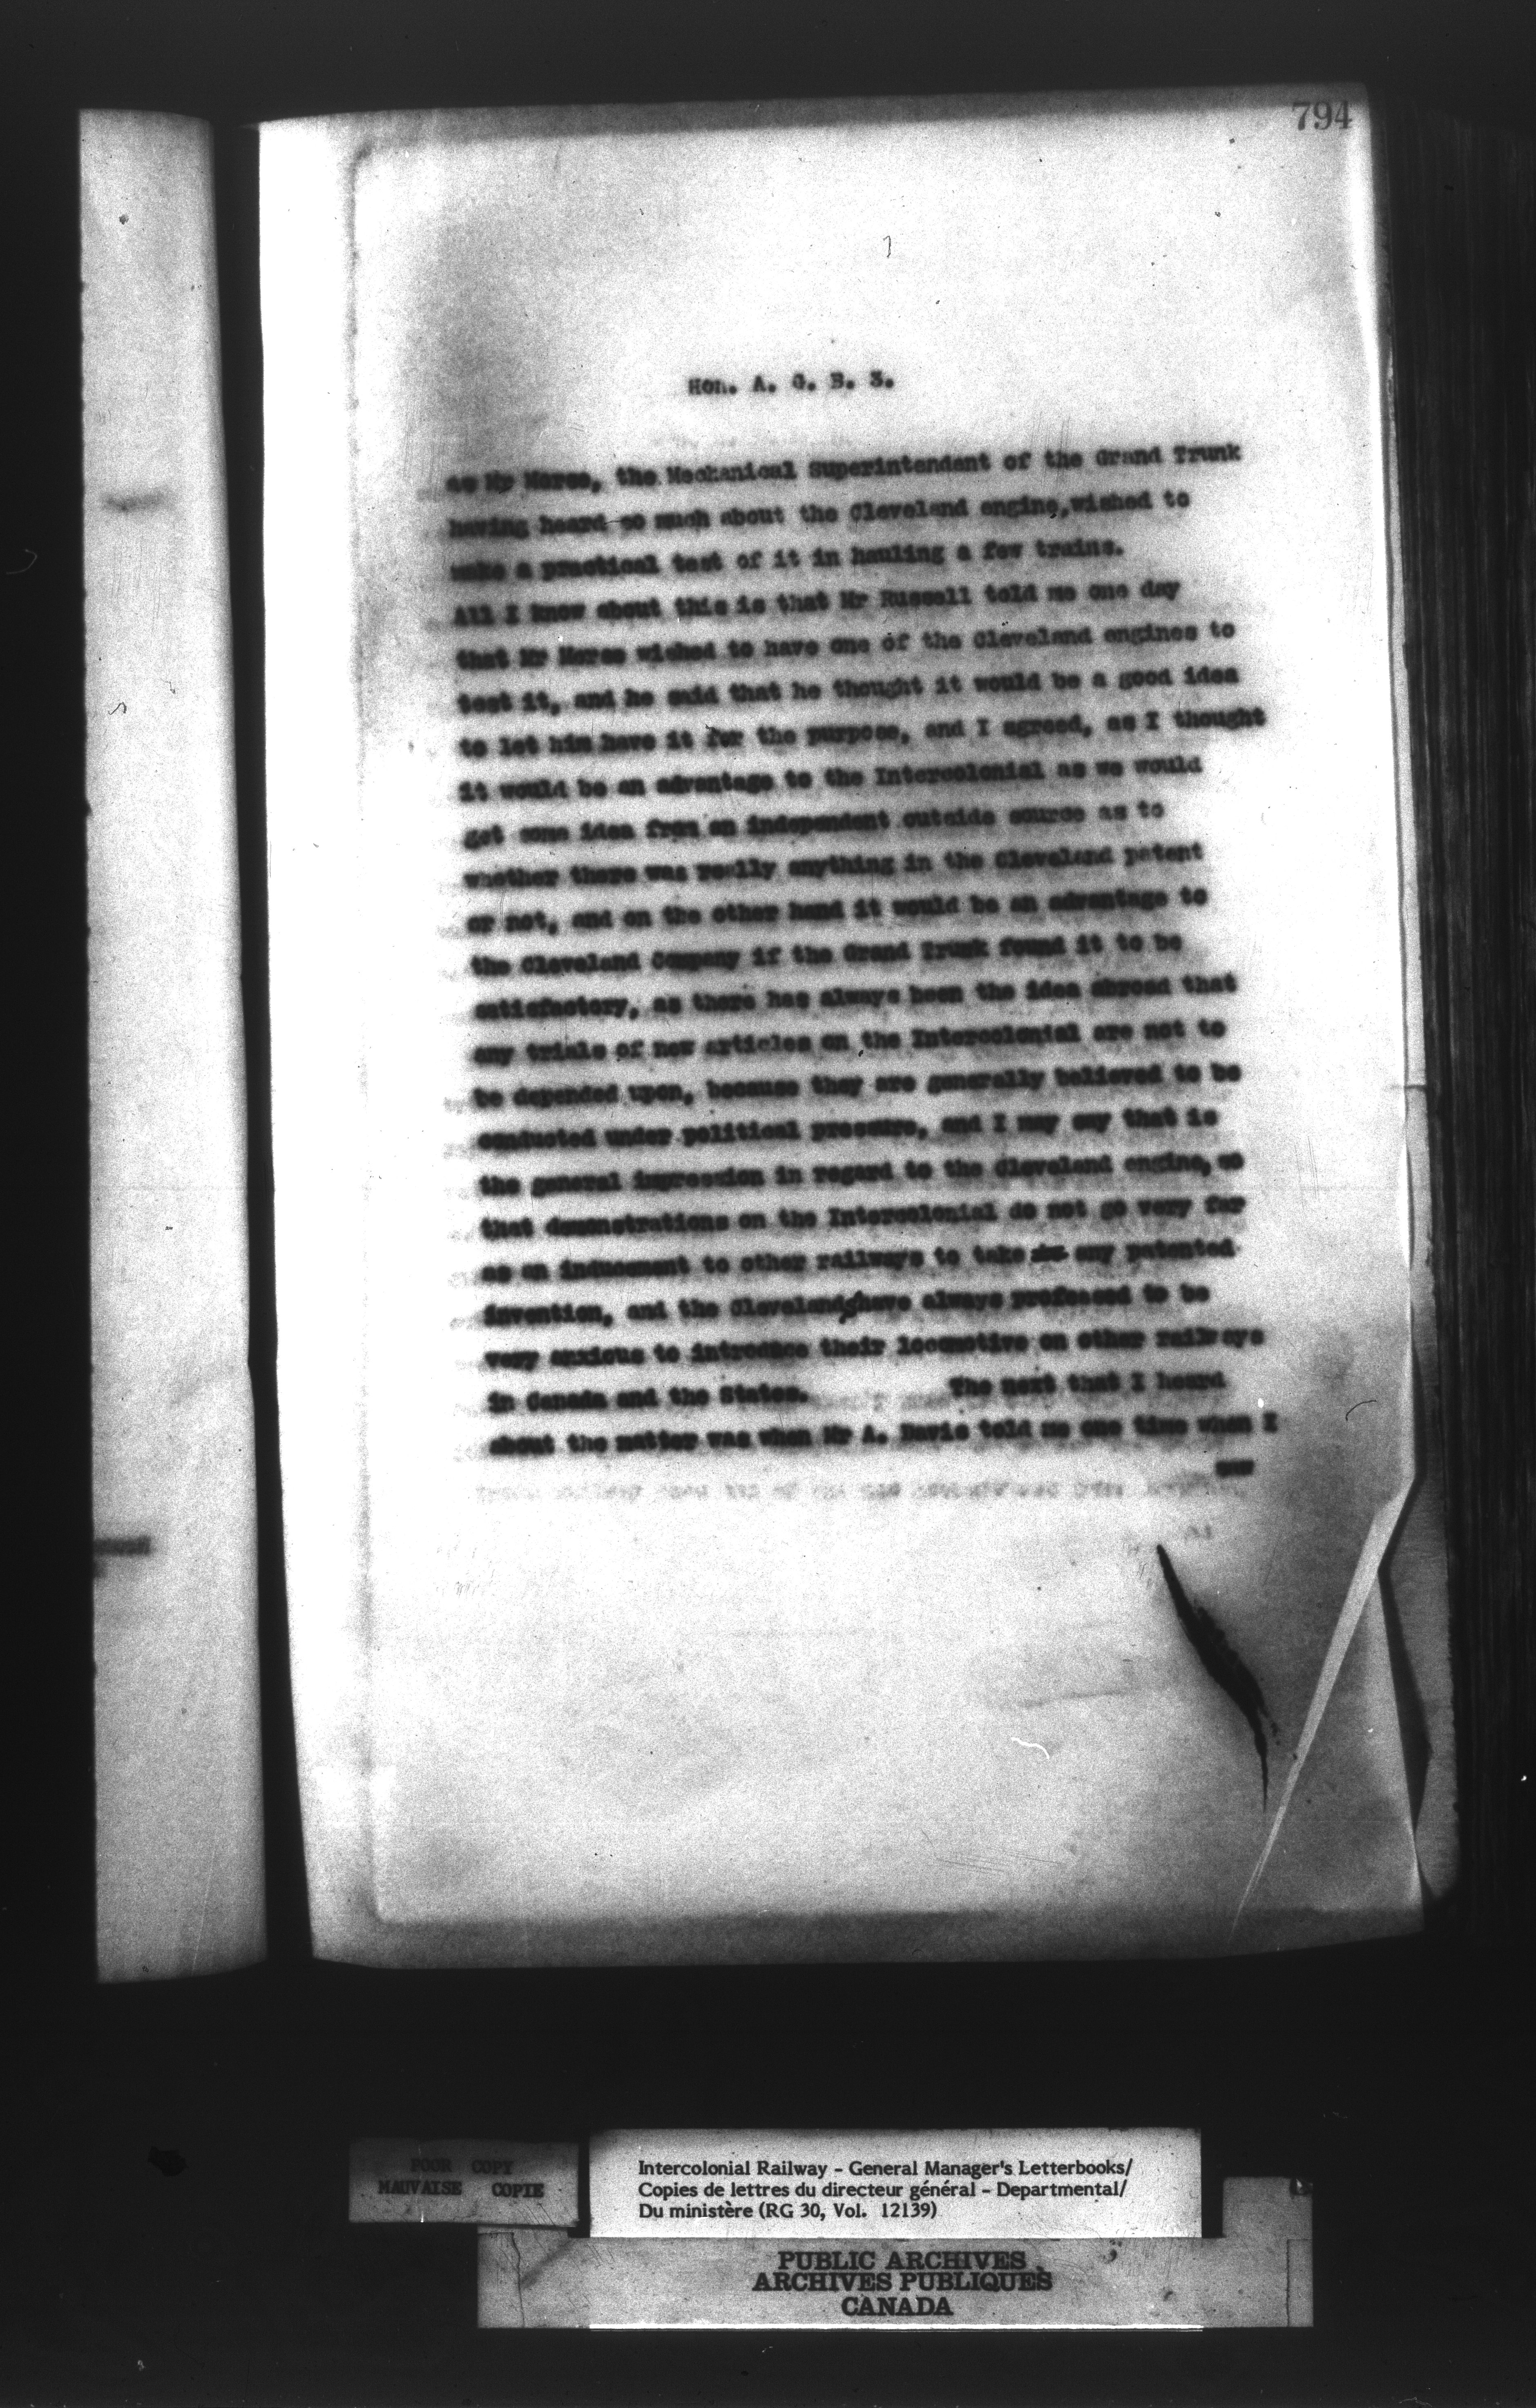 794
Hon. A. G. B. 3.
as Mr Morse, the Mechanical Superintendent of the Grand Trunk
having heard so much about the Cleveland engine, wished to
make a practical test of it in hauling a few trains.
All I know about this is that Mr Russell told me one day
that Mr Morse wished to have one of the Cleveland engines to
test it, and he said that he thought it would be a good idea
to let him have it for the purpose, and I agreed, as I thought
it would be an advantage to the Intercolonial as we would
get some idea from an independent outside source as to
whether there was really anything in the Cleveland patent
or not, and on the other hand it would be an advantage to
the Cleveland Company if the Grand Trunk found it to be
satisfactory, as there has always been the idea abroad that
any trials of new articles on the Intercolonial are not to
be depended upon, because they are generally believed to be
conducted under political pressure, and I may say that is
the general impression in regard to the Cleveland engine, so
that demonstrations on the Intercolonial do not go very far
as an inducement to other railways to take any patented
invention, and the Clevelands have always professed to be
very anxious to introduce their locomotive on other railways
in Canada and the States. The next that I heard
about the matter was when Mr A. Davis told me one time when I
POOR COPY
MAUVAISE COPIE
Intercolonial Railway - General Manager's Letterbooks/
Copies de lettres du directeur général - Departmental/
Du ministère (RG 30, Vol. 12139)
PUBLIC ARCHIVES
ARCHIVES PUBLIQUES
CANADA